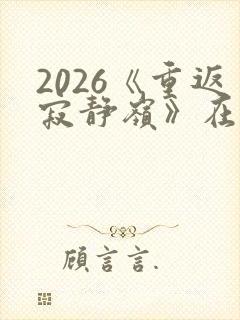 2026《重返
寂静嶺》在
顧言言.